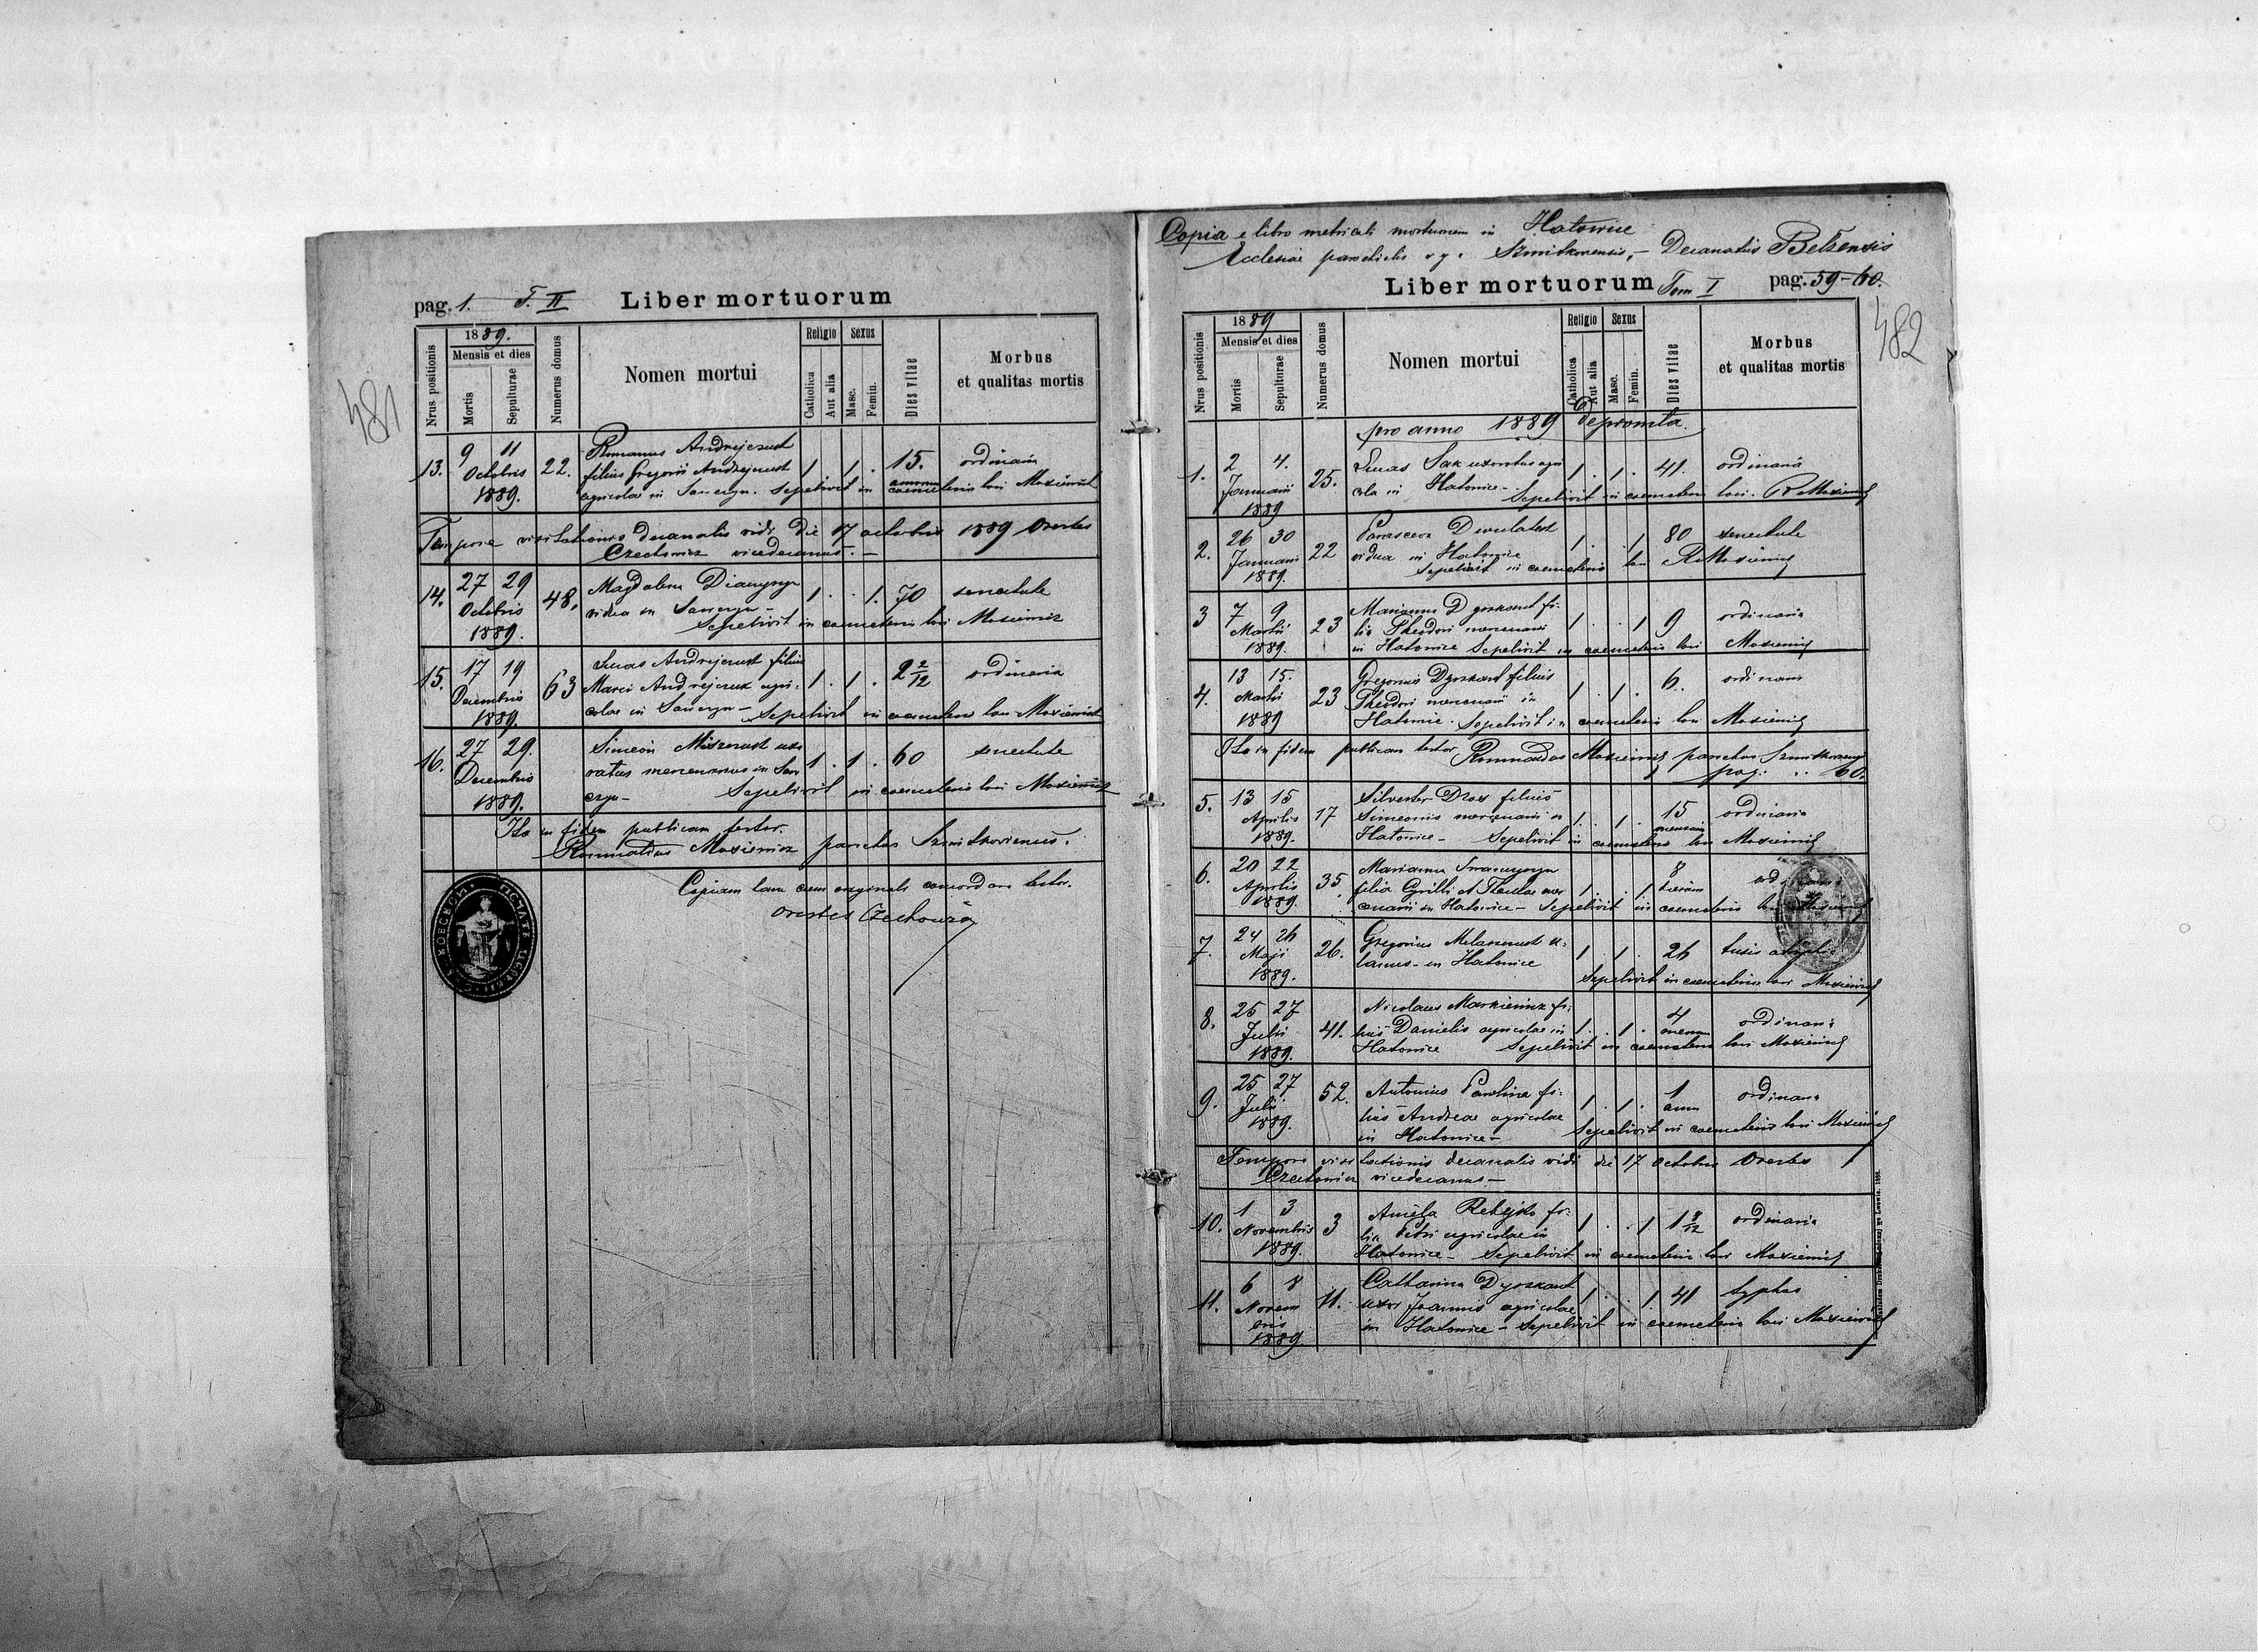 pag. 1. T. II Liber mortuorum
481
Nrus positionis
1889.
Mensis et dies
Mortis
Sepulturae
Numerus domus
Nomen mortui
Religio
Catholica
Aut alia
Sexus
Masc.
Femin.
Dies vitae
Morbus
et qualitas mortis
13. 9 11 22. Romanus Andrejczuk 1 . 1 . 15. ordinaria
Octobris filius Gregorii Andrejczuk annorum
1889. agricolae in Sawczyn. Sepelivit in coemeterio loci Maxiewicz
Tempore visitationis decanalis vidi die 17 octobris 1889 Orestes
Czechowicz vicedecanus. —
14. 27 29 48. Magdalena 1 . . 1. 70 senectute
Octobris vidua in Sawczyn —
1889. Sepelivit in coemeterio loci Maxiewicz
15. 17 19 63 Lucas Andrejczuk filius 1 . 1 . 2 2/12 ordinaria
Decembris Marci Andrejczuk agri-
1889. colae in Sawczyn — Sepelivit in coemeterio loci Maxiewicz
16. 27 29. Simeon uxo 1 . 1 . 60 senectute
Decembris ratus mercenarius in Saw
1889. czyn — Sepelivit in coemeterio loci Maxiewicz
Ita in fidem publicam testor.
Romualdus Maxiewicz parochus Szmitkoviensis.
Copiam hanc cum originali concordare testor.
Orestes Czechowicz
Copia e libro metricali mortuorum in Hatowice
Ecclesiae parochialis r. g. c. Szmitkoviensis, — Decanatus Belzensis
Liber mortuorum Tom I pag. 59-60.
482
Nrus positionis
1889
Mensis et dies
Mortis
Sepulturae
Numerus domus
Nomen mortui
Religio
Catholica
Aut alia
Sexus
Masc.
Femin.
Dies vitae
Morbus
et qualitas mortis
pro anno 1889 deprompta.
1. 2 4. 25. Lucas Sak uxoratus agri 1 . 1 . 41. ordinaria
Januarii cola in Hatowice — Sepelivit in coemeterio loci. R Maxiewicz
1889
2. 26 30 22 Parasceva 1 . . 1 80 senectute
Januarii vidua in Hatowice
1889. Sepelivit in coemeterio loci R Maxiewicz
3 7 9 23 Marianna Dyszkant fi- 1 . . 1 9 ordinaria
Martii lia Theodori mercenarii
1889. in Hatowice Sepelivit in coemeterio loci Maxiewicz
4. 13 15. 23 Gregorius Dyszkant filius 1 . 1 . 6. ordinaria
Martii Theodori mercenarii in
1889 Hatowice. Sepelivit in coemeterio loci Maxiewicz
Ita in fidem publicam testor Romualdus Maxiewicz parochus
pag: .. 60.
5. 13 15 17 Silvester filius 1 . 1 . 15 ordinaria
Aprilis Simeonis mercenarii in mensium
1889. Hatowice — Sepelivit in coemeterio loci Maxiewicz
6. 20 22 35 Marianna 1 . . 1 8
Aprilis filia Cyrilli et Theclae mer dierum
1889. cenarii in Hatowice — Sepelivit in coemeterio loci
7. 24 26 26. Gregorius 1 . 1 . 26 tusis
Maji in Hatowice
1889. Sepelivit in coemeterio loci Maxiewicz
8. 25 27 41. Nicolaus Markiewicz fi- 1 . 1 . 4 ordinaria
Julii lius Danielis agricolae in mensium
1889. Hatowice Sepelivit in coemeterio loci Maxiewicz
9. 25 27 52. Antonius Pawlina fi- 1 . 1 . 1 ordinaria
Julii lius Andreae agricolae anni
1889. in Hatowice — Sepelivit in coemeterio loci Maxiewicz
Tempore visitationis decanalis vidi die 17 octobris Orestes
Czechowicz vicedecanus —
10. 1 3 3 Amela fi- 1 . . 1 1 8/12 ordinaria
Novembris lia Petri agricolae in
1889. Hatowice — Sepelivit in coemeterio loci Maxiewicz
11. 6 8 11. Catharina Dyszkant 1 . . 1 41 typhus
Novem uxor Joannis agricolae
bris in Hatowice — Sepelivit in coemeterio loci Maxiewicz
1889